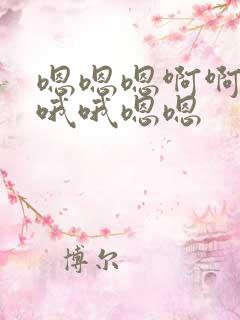 嗯嗯嗯啊啊
哦哦嗯嗯
博尔